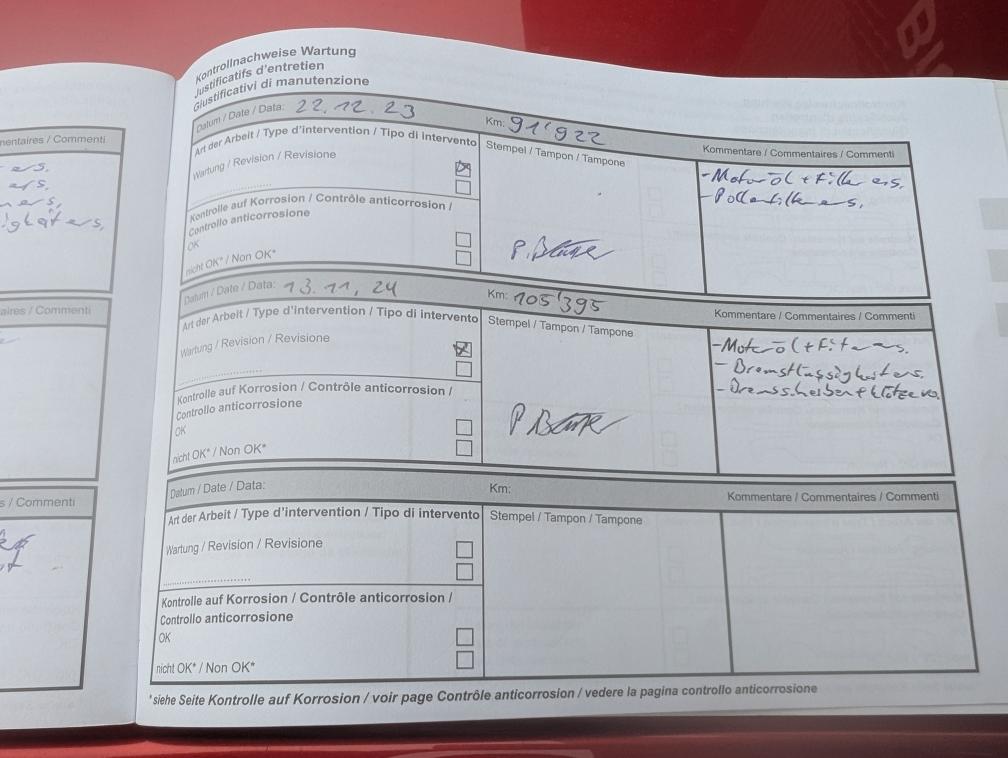 Kontrollnachweise Wartung
Justificatifs d'entretien
Giustificativi di manutenzione
Datum / Date / Data: 22.12.23
Km: 91'922
Art der Arbeit / Type d'intervention / Tipo di intervento
Stempel / Tampon / Tampone
Kommentare / Commentaires / Commenti
Wartung / Revision / Revisione
- Motoröl + Filter ers.
- Pollenfilter ers.
Kontrolle auf Korrosion / Contrôle anticorrosion /
Controllo anticorrosione
OK
nicht OK* / Non OK*
P.
Datum / Date / Data: 13.11.24
Km: 105'395
Art der Arbeit / Type d'intervention / Tipo di intervento
Stempel / Tampon / Tampone
Kommentare / Commentaires / Commenti
Wartung / Revision / Revisione
- Motoröl + Filter ers.
- Bremsflüssigkeit ers.
- Bremsscheiben + Klötze
Kontrolle auf Korrosion / Contrôle anticorrosion /
Controllo anticorrosione
OK
nicht OK* / Non OK*
P
Datum / Date / Data:
Km:
Kommentare / Commentaires / Commenti
Art der Arbeit / Type d'intervention / Tipo di intervento
Stempel / Tampon / Tampone
Wartung / Revision / Revisione
Kontrolle auf Korrosion / Contrôle anticorrosion /
Controllo anticorrosione
OK
nicht OK* / Non OK*
*siehe Seite Kontrolle auf Korrosion / voir page Contrôle anticorrosion / vedere la pagina controllo anticorrosione
mentaires / Commenti
ers.
ers.
ers.
aires / Commenti
s / Commenti